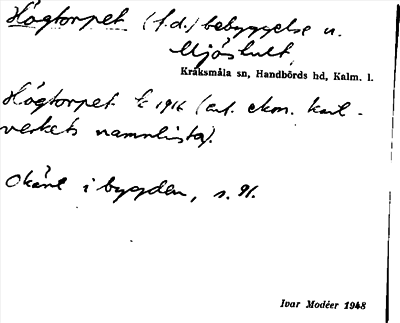 Högtorpet (f.d.) bebyggelse u.
Mjöshult,
Kråksmåla sn, Handbörds hd, Kalm. l.
Högtorpet k 1916 (enl. ekon. kart-
verkets namnlista).
Okänt i bygden, s. 91.
Ivar Modéer 1948